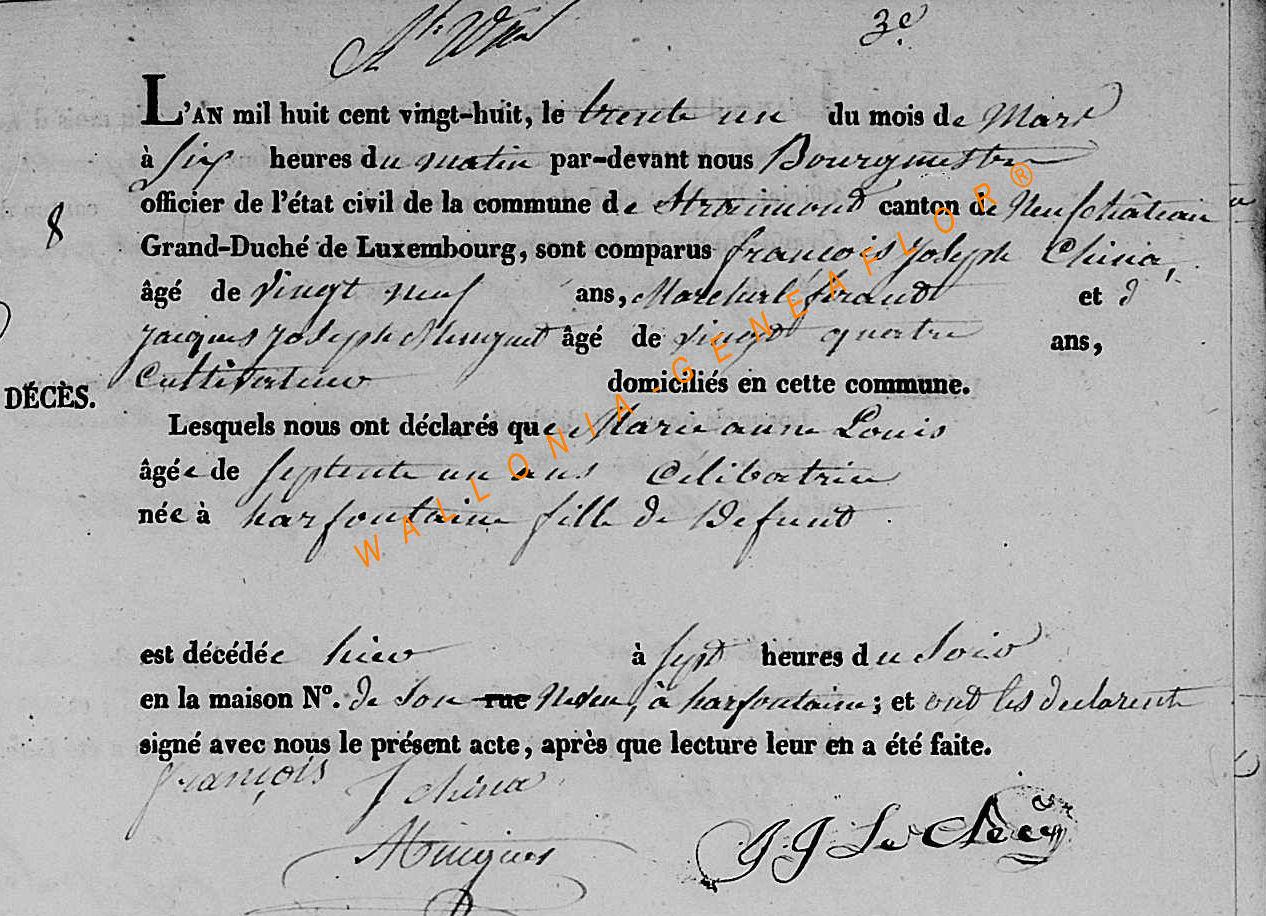 3e
L'AN mil huit cent vingt-huit, le trente un du mois de Mars
à Six heures du matin par-devant nous Bourgmestre
officier de l'état civil de la commune de Straimont canton de Neufchâteau
8
Grand-Duché de Luxembourg, sont comparus françois joseph China,
âgé de vingt neuf ans, Marechal ferant et d
jacques joseph Minguet âgé de vingt quatre ans,
Cultivateur domiciliés en cette commune.
DÉCÈS.
Lesquels nous ont déclarés que Marie anne Louis
âgée de septente un ans Célibatrice
née à harfontaine fille de Défunt
est décédée hier à sept heures du Soir
en la maison N°. de Son rue Neveu, à harfontaine; et ont les declarents
signé avec nous le présent acte, après que lecture leur en a été faite.
françois J China
JJ Le Clerc
WALLONIA-GENEAFLOR®